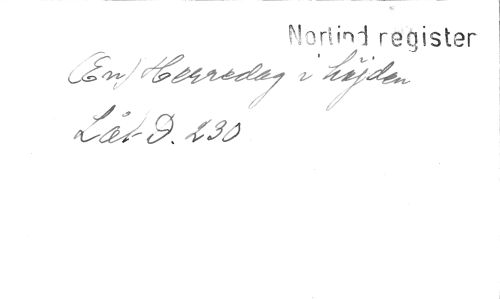 Norlind register
(En) Herredag i höjden
Låt D. 230